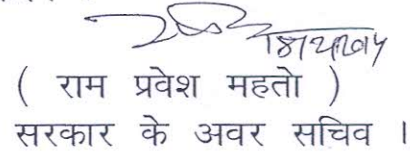 ( राम प्रवेश महतो )
सरकार के अवर सचिव ।